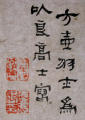 方壺羽士為
以良高士寫